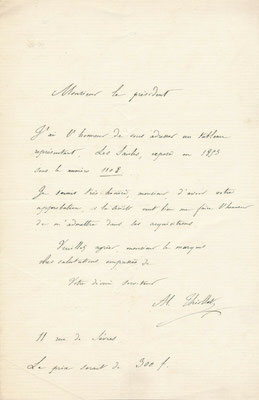 Monsieur le président
J'ai l'honneur de vous adresser un tableau
représentant, Les Saules, exposé en 1893
sous le numéro 1108.
Je serais très honoré, monsieur d'avoir votre
approbation, si la Société veut bien me faire l'honneur
de m'admettre dans ses acquisitions
Veuillez agréer monsieur le marquis
les salutations empressées de
Votre dévoué serviteur
M
11 rue de Sèvres
Le prix serait de 300 f.